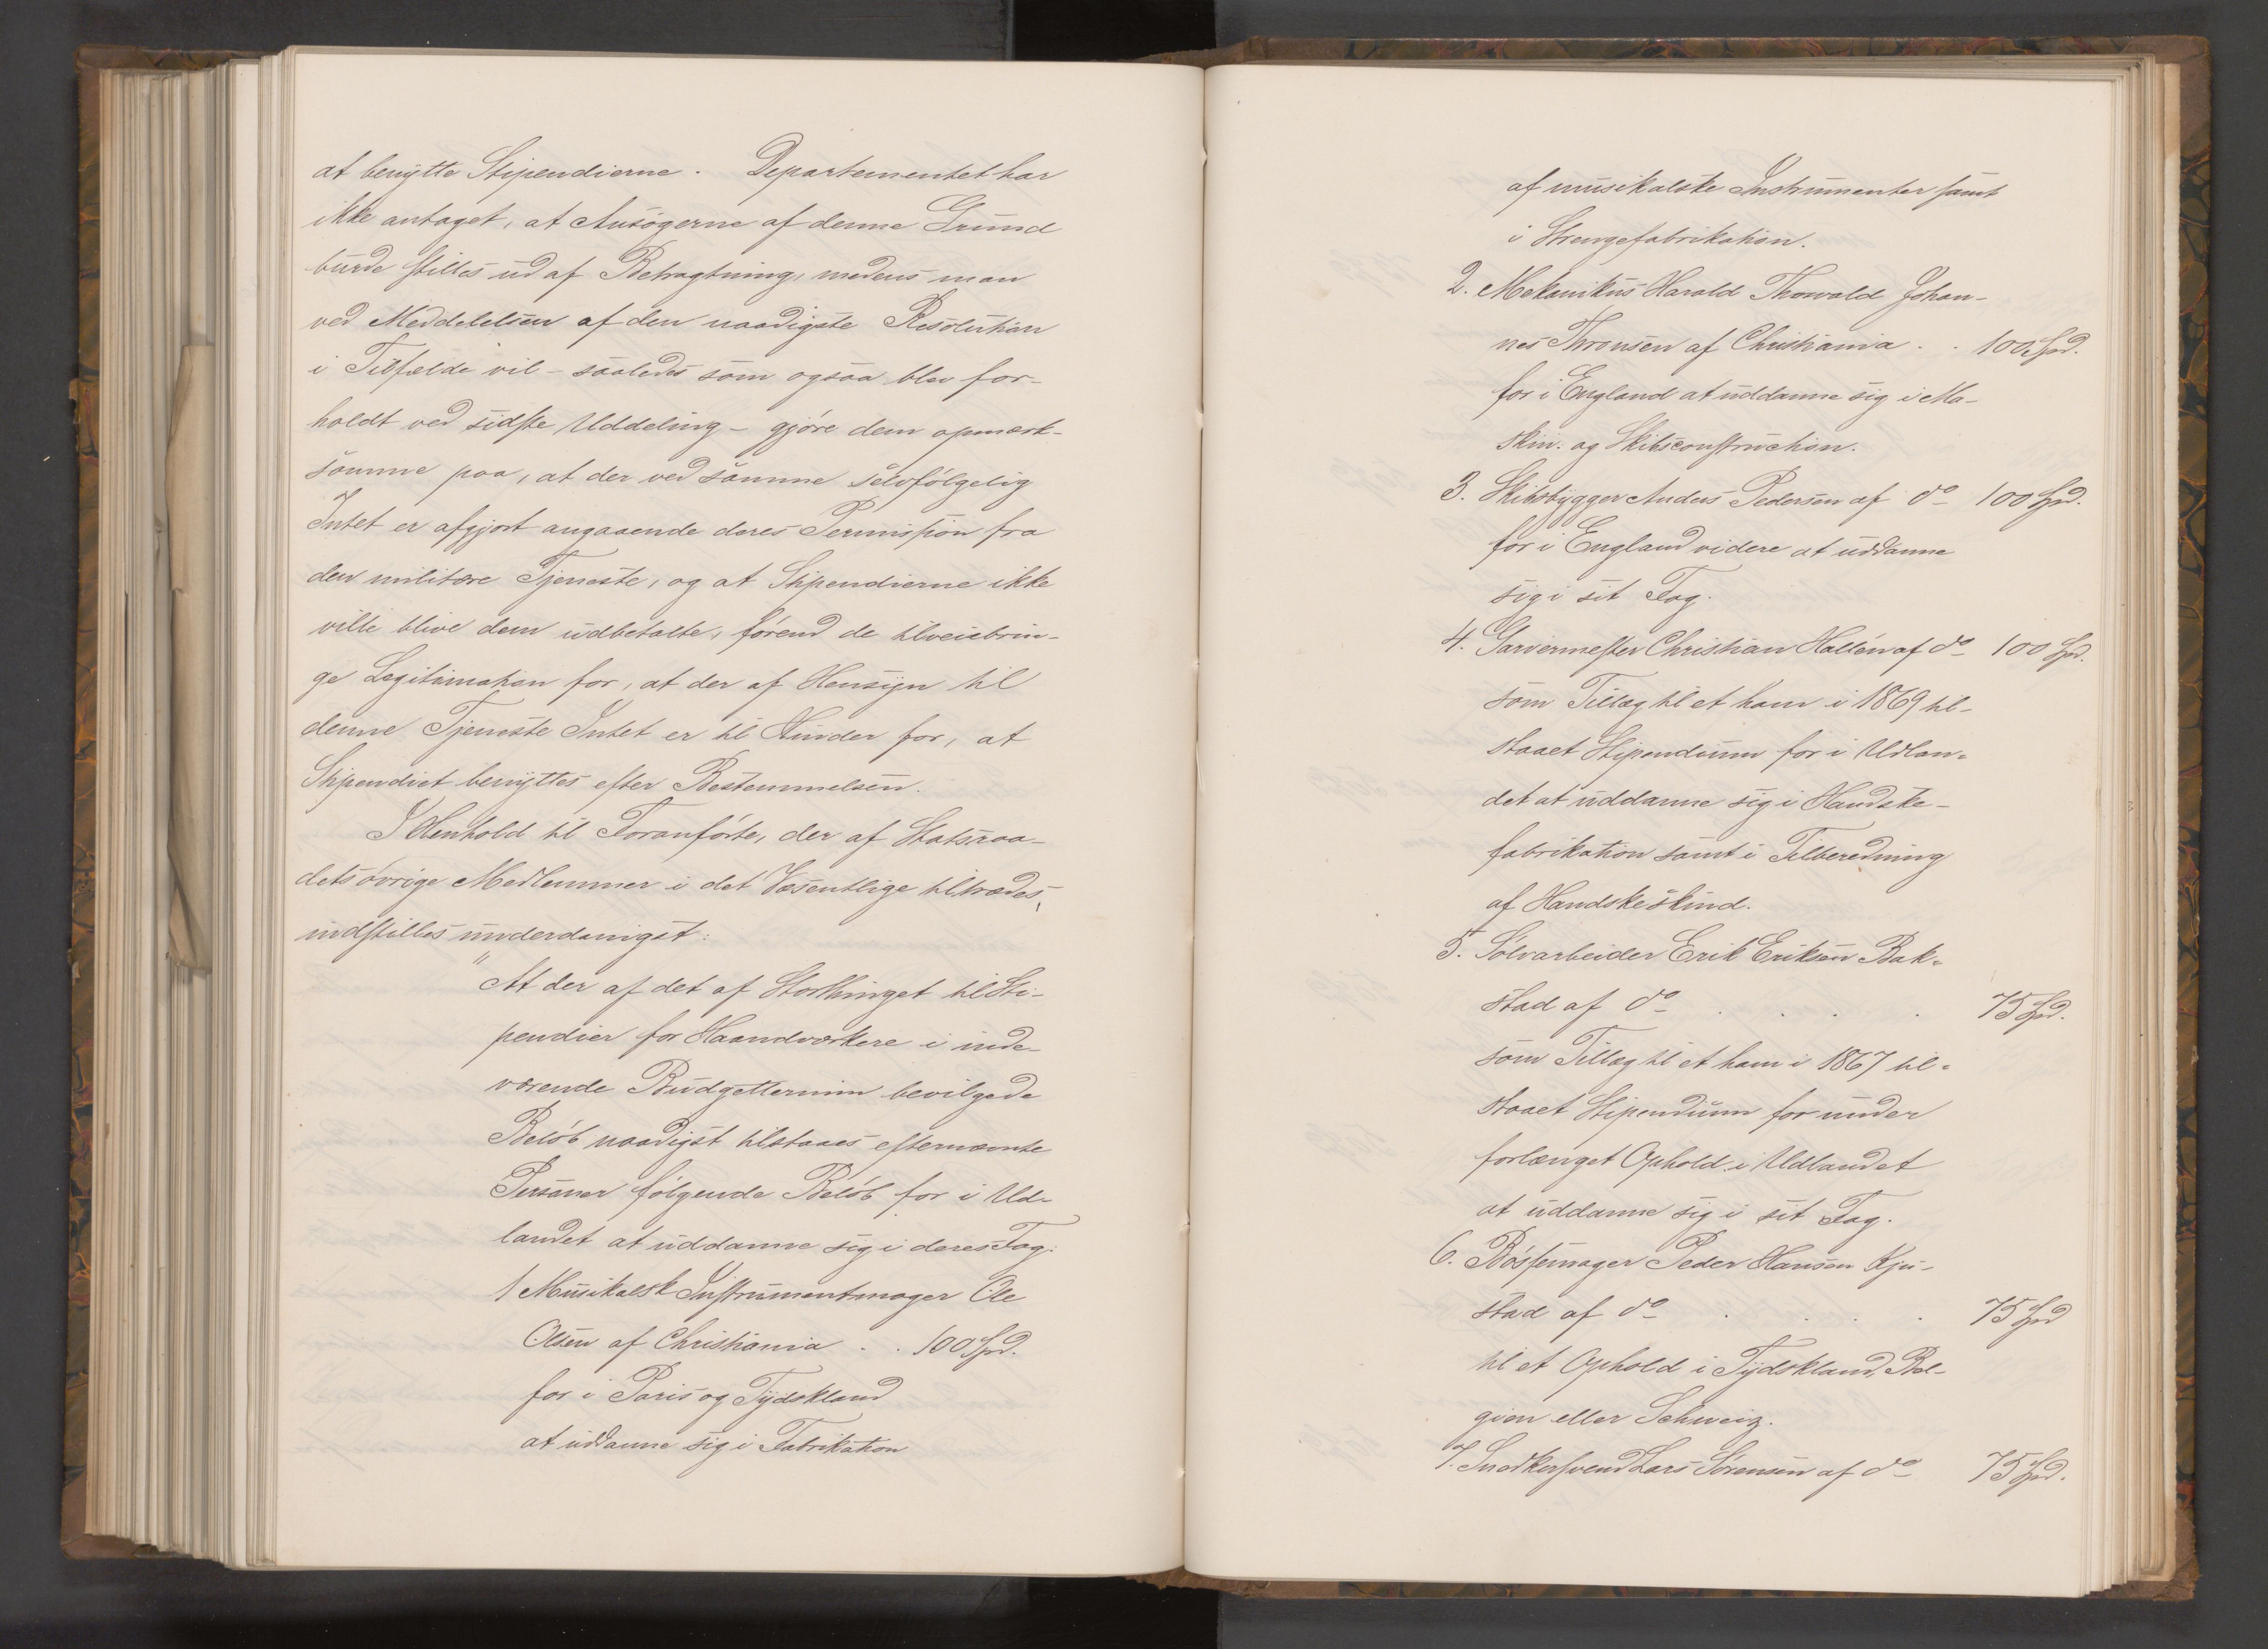 at benytte Stipendierne. Departementet har
ikke antaget, at Ansøgerne af denne Grund
burde stilles ud af Betragtning, medens man
ved Meddelelsen af den naadigste Resolution
i Tilfælde vil – saaledes som ogsaa blev for-
holdt ved sidste Uddeling – gjøre dem opmærk-
somme paa, at der ved samme selvfølgelig
Intet er afgjort angaaende deres Permission fra
den militære Tjeneste, og at Stipendierne ikke
ville blive dem udbetalte, førend de tilveiebrin-
ge Legitimation for, at der af Hensyn til
denne Tjeneste Intet er til Hinder for, at
Stipendiet benyttes efter Bestemmelsen.
I Henhold til Foranførte, der af Statsraa-
dets øvrige Medlemmer i det Væsentlige tiltrædes,
indstilles underdanigst:
"At der af det af Storthinget til Sti-
pendier for Haandværkere i inde-
værende Budgettermin bevilgede
Beløb naadigst tilstaaes efternævnte
Personer følgende Beløb for i Ud-
landet at uddanne sig i deres Fag:
1 Musikalsk Instrumentmager Ole
Olsen af Christiania . . 100 Spd.
for i Paris og Tydskland
at uddanne sig i Fabrikation
af musikalske Instrumenter samt
i Strengefabrikation.
2. Mekanikus Harald Thorvald Johan-
nes Thronsen af Christiania . . 100 Spd.
for i England at uddanne sig i Ma-
skin- og Skibsconstruction.
3. Skibsbygger Anders Pedersen af do 100 Spd.
for i England videre at uddanne
sig i sit Fag.
4. Garvermester Christian Hallén af do 100 Spd.
som Tillæg til et ham i 1869 til-
staaet Stipendium for i Udlan-
det at uddanne sig i Handske-
fabrikation samt i Tilberedning
af Handskeskind.
5. Sølvarbeider Erik Eriksen Bak-
stad af do . . . . 75 Spd.
som Tillæg til et ham i 1867 til-
staaet Stipendium for under
forlænget Ophold i Udlandet
at uddanne sig i sit Fag.
6. Bøssemager Peder Hansen Kju-
stad af do . . . . 75 Spd
til et Ophold i Tydskland, Bel-
gien eller Schweiz.
7. Snedkersvend Lars Sørensen af do 75 Spd.